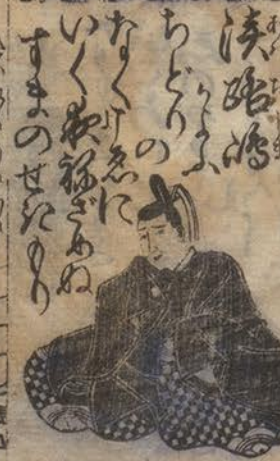 淡路嶋
かよふ
ちどりの
なく声に
いく夜ねざめぬ
すまのせきもり